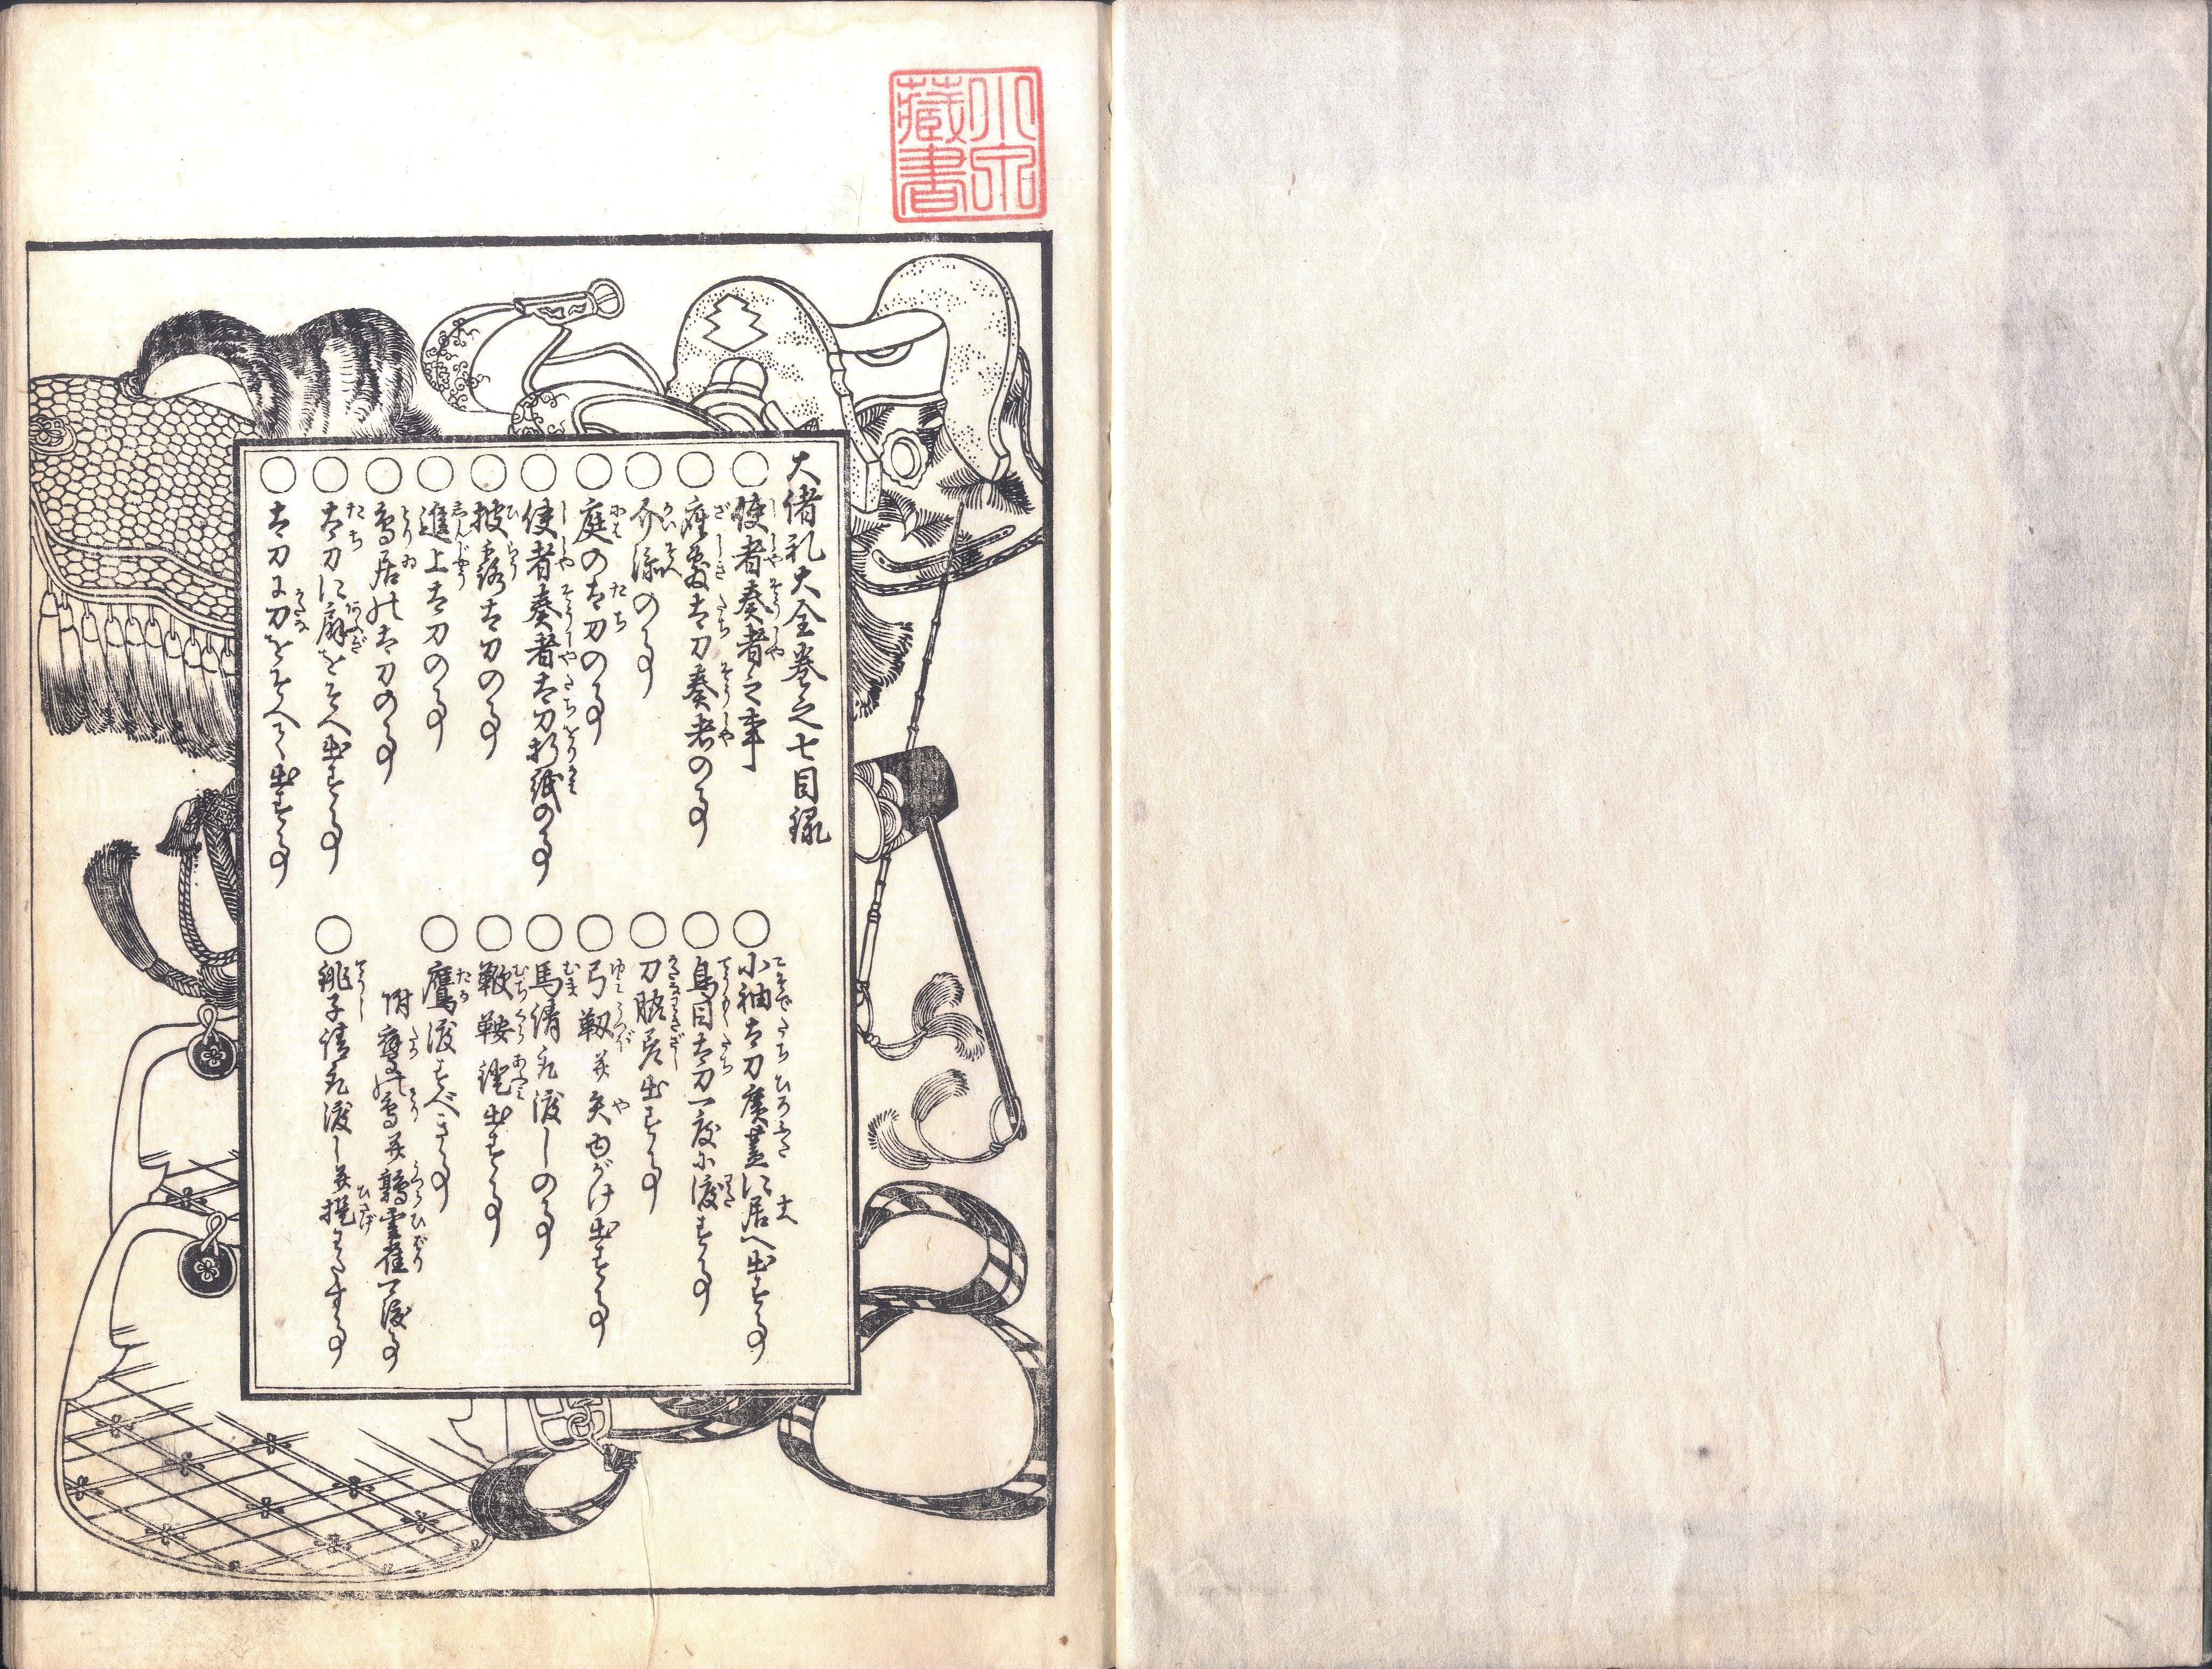 小泉
藏書
大諸礼大全巻之七目録
○使者奏者之事
○座敷太刀奏者の事
○介添の事
○庭の太刀の事
○使者奏者太刀折紙の事
○披露太刀の事
○進上太刀の事
○鳥居の太刀の事
○太刀に扇をそへ出す事
○太刀に刀をそへて出す事
○小袖太刀廣蓋に居へ出す事
○鳥目太刀一度に渡す事
○刀脇差出す事
○弓靱並矢ゆがけ出す事
○馬請取渡しの事
○鞭鞍鐙出す事
○鷹渡すべき事
附鷹の鳥並鶉雲雀可渡事
○銚子請取渡し並提わたす事